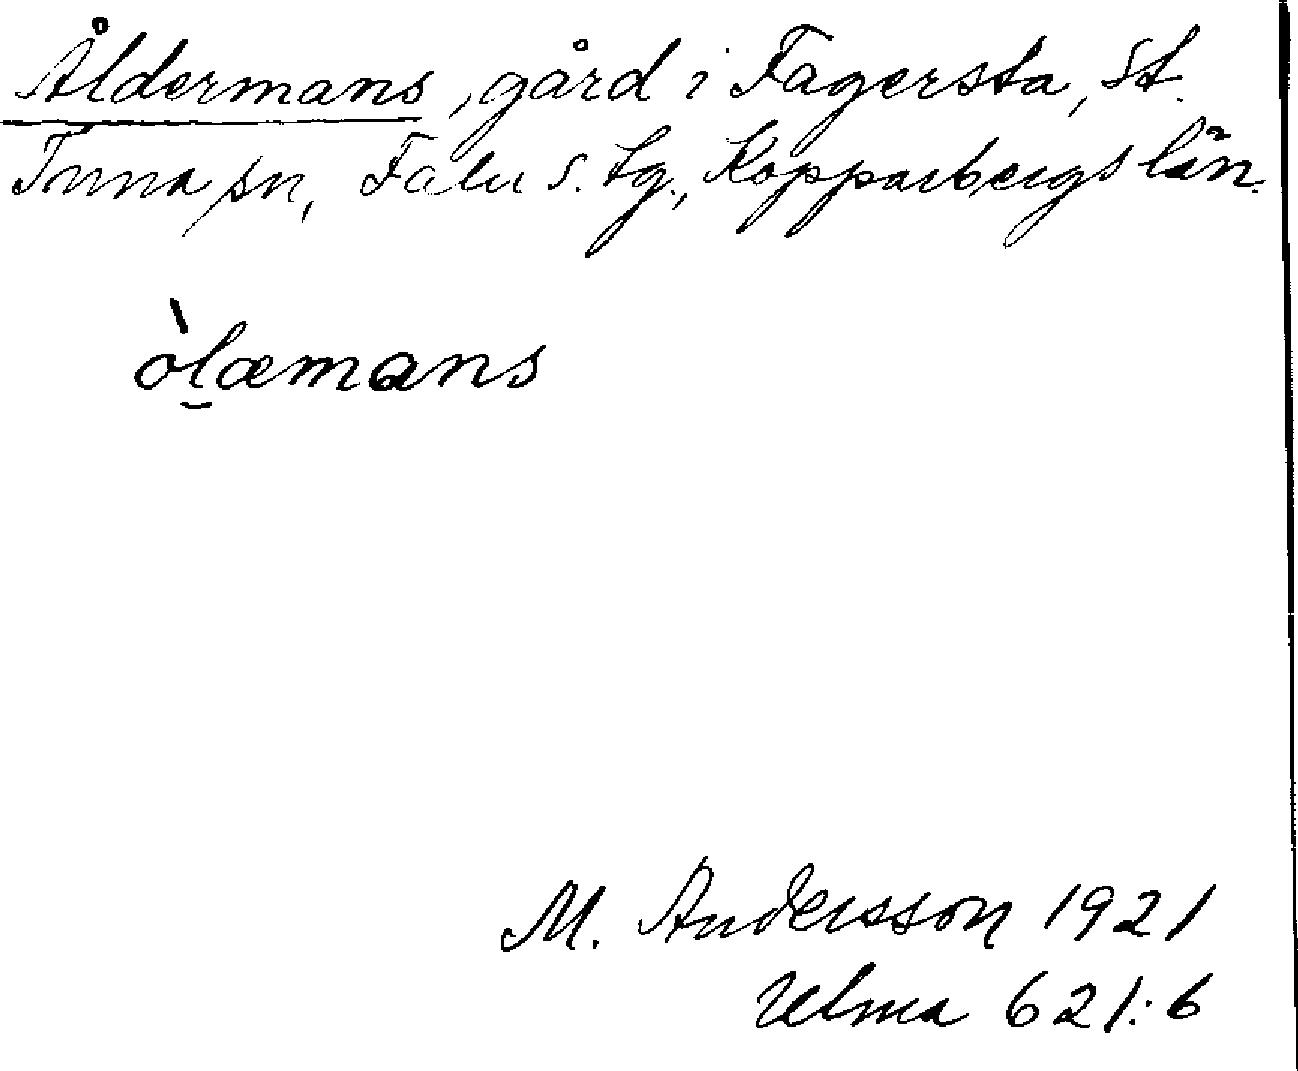 Åldermans, gård i Fagersta, St.
Tuna sn, Falu s. tg., Kopparbergs län.
òlæmans
M. Andersson 1921
Ulma 621:6